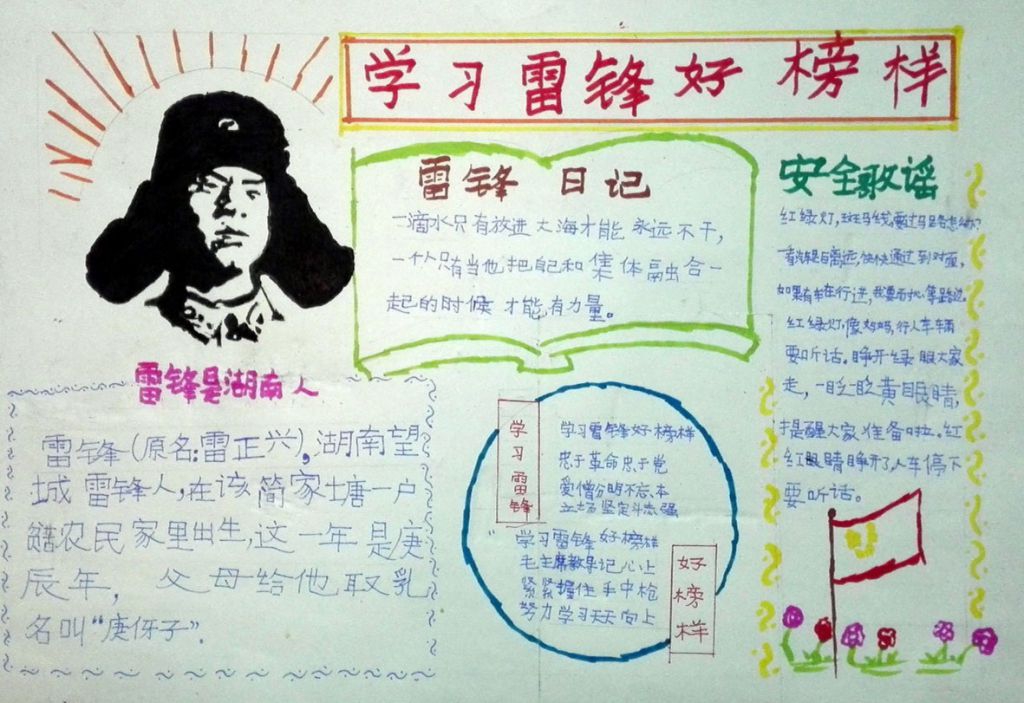 学习雷锋好榜样
雷锋日记
一滴水只有放进大海才能永远不干,
一个人只有当他把自己和集体融合一
起的时候才能有力量。
安全歌谣
红绿灯,斑马线,要过马路怎么办?
快快通过到对面,
如果有车在行进,我要等路边。
红绿灯,像妈妈,行人车辆
要听话。睁开绿眼大家
走,一眨一眨黄眼睛,
提醒大家准备啦。红
红眼睛睁开了,人车停下
要听话。
雷锋是湖南人
雷锋(原名:雷正兴),湖南望
城雷锋人,在该简家塘一户
农民家里出生,这一年是庚
辰年,父母给他取乳
名叫“庚伢子”.
学习雷锋
学习雷锋好榜样
忠于革命忠于党
爱憎分明不忘本
立场坚定斗志强
学习雷锋好榜样
毛主席教导记心上
紧紧握住手中枪
努力学习天天向上
好榜样